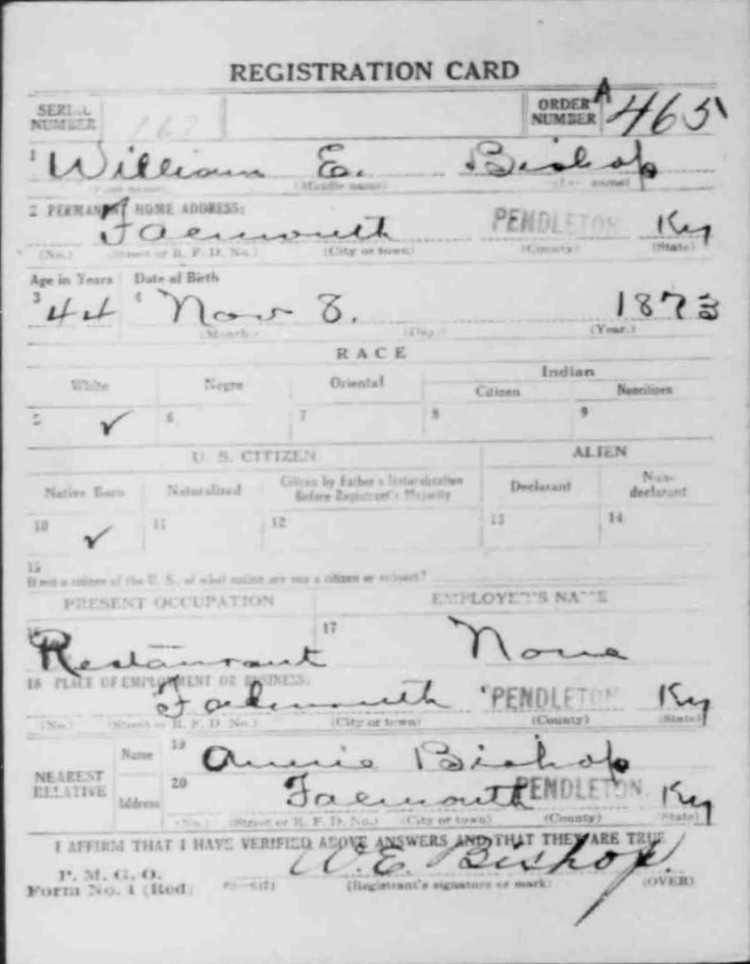 REGISTRATION CARD
SERIAL NUMBER 167 ORDER NUMBER A 465
1 William E. Bishop
(First name) (Middle name) (Last name)
2 PERMANENT HOME ADDRESS:
Falmouth PENDLETON Ky
(No.) (Street or R. F. D. No.) (City or town) (County) (State)
Age in Years Date of Birth
3 44 4 Nov 8. 1873
(Month.) (Day.) (Year.)
RACE
White Negro Oriental Indian
Citizen Noncitizen
5 ✓ 6 7 8 9
U. S. CITIZEN ALIEN
Native Born Naturalized Citizen by Father's Naturalization Before Registrant's Majority Declarant Non-declarant
10 ✓ 11 12 13 14
15
If not a citizen of the U. S., of what nation are you a citizen or subject?
PRESENT OCCUPATION EMPLOYER'S NAME
16 Restaurant 17 None
18 PLACE OF EMPLOYMENT OR BUSINESS:
Falmouth PENDLETON Ky
(No.) (Street or R. F. D. No.) (City or town) (County) (State)
NEAREST RELATIVE Name 19 Annie Bishop
Address 20 Falmouth PENDLETON Ky
(No.) (Street or R. F. D. No.) (City or town) (County) (State)
I AFFIRM THAT I HAVE VERIFIED ABOVE ANSWERS AND THAT THEY ARE TRUE
P. M. G. O.
Form No. 1 (Red) W.E. Bishop
(Registrant's signature or mark) (OVER)